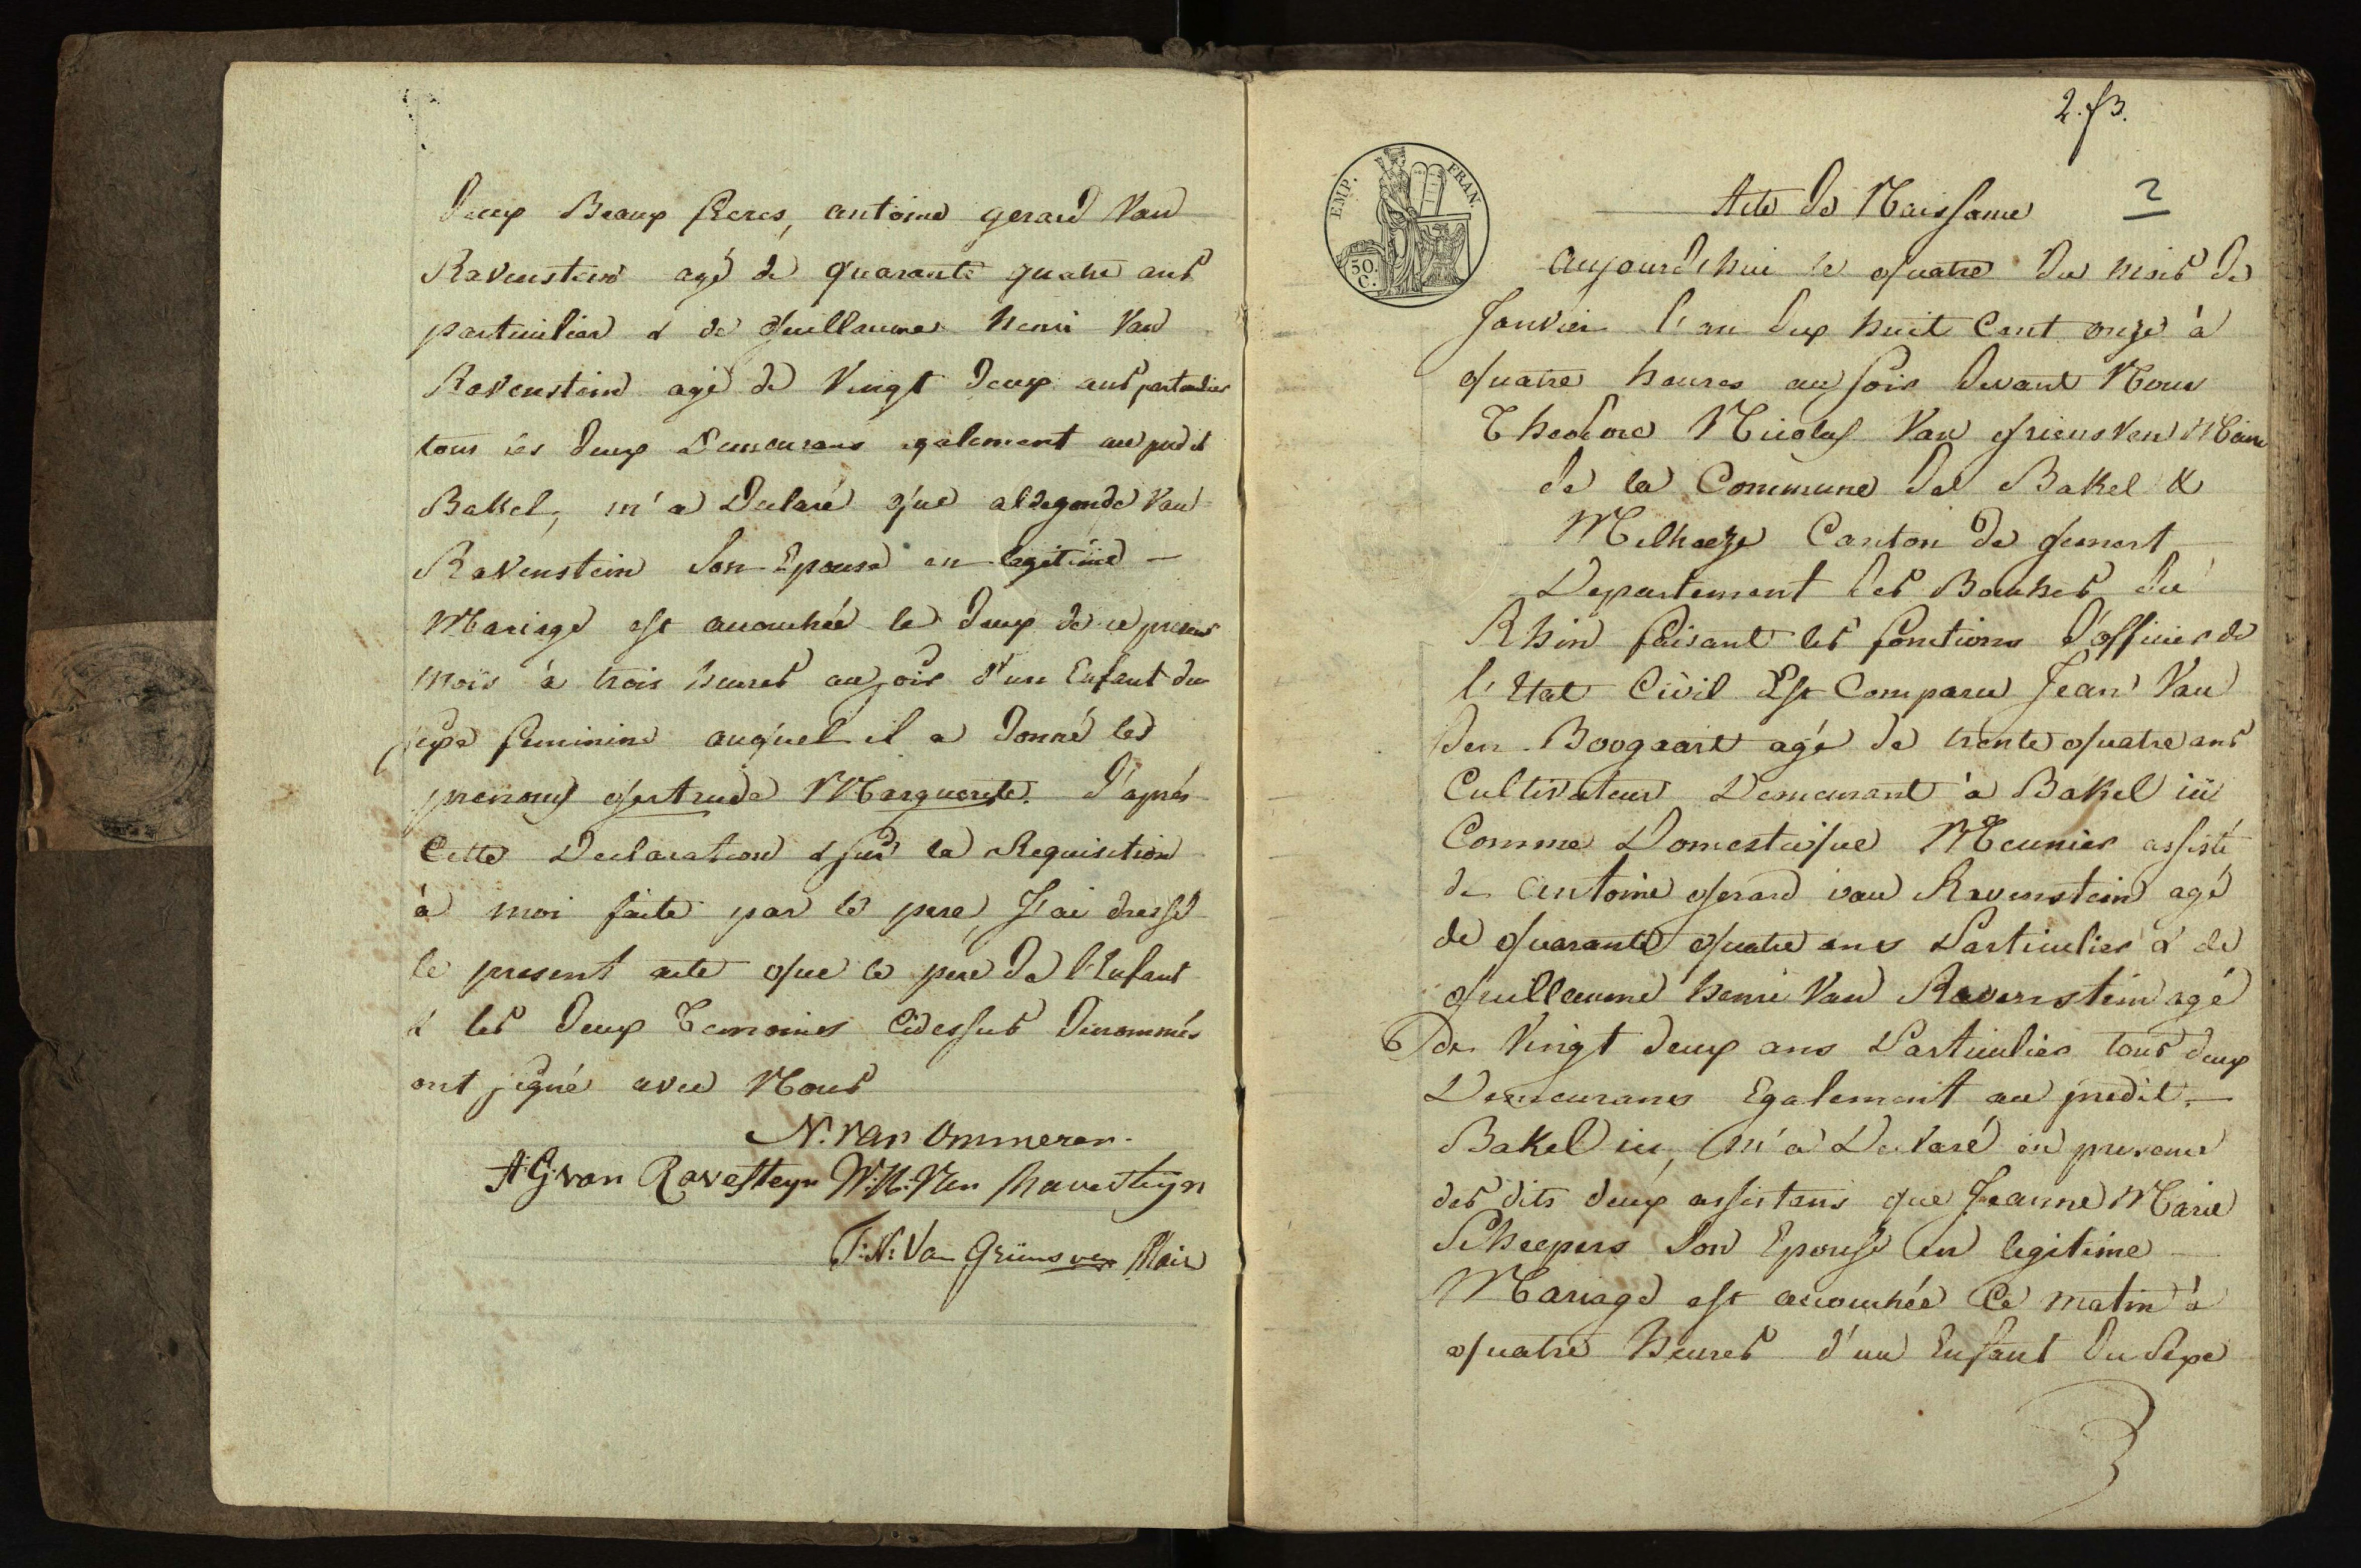 deux Beaux freres, antoine gerard Van
Ravenstein agé de quarante quatre ans
particulier & de guillaume henri Van
Ravenstein agé de Vingt deux ans particulier
tous les deux Demeurans egalement au predit
Bakel, m'a Declaré que aldegonde Van
Ravenstein son Epouse en legitime —
Mariage est accouchée le deux de ce present
mois à trois heures au soir d'un Enfant du
sexe feminin auquel il a donné les
prenoms gertrude Marguerite. d'après
Cette Declaration & sur la Requisition
à moi faite par le pere, J'ai dressé
le present acte que le père de l'Enfant
& les deux Temoins Cidessus denommés
ont signé avec Nous
N. van Ommeren.
A:G:van Ravesteyn W:H:Van Ravesteijn
T:N: Van Griensven Mair
2. f3.
EMP. FRAN.
50. C.
Acte de Naissance 2
aujourdehui le quatre du mois de
Janvier l'an dix huit Cent onze à
quatre heures au soir devant Nous
Theodore Nicolas Van griensven Maire
de la Commune de Bakel &
Milheeze Canton de gemert
Departement des Bouches du
Rhin faisant les fonctions d'officier de
l'Etat Civil Est Comparu Jean Van
den Boogaart agé de trente quatre ans
Cultivateur Demeurant à Bakel ici
Comme Domestique Meunier assisté
de antoine gerard van Ravenstein agé
de quarante quatre ans Particulier & de
guillaume henri Van Ravenstein agé
de Vingt deux ans Particulier tous deux
Demeurans Egalement au predit —
Bakel ici, m'a Declaré en presence
des dits deux assistans que Jeanne Marie
Scheepers son Epouse en legitime —
Mariage est accouchée Ce matin à
quatre heures d'un Enfant du sexe